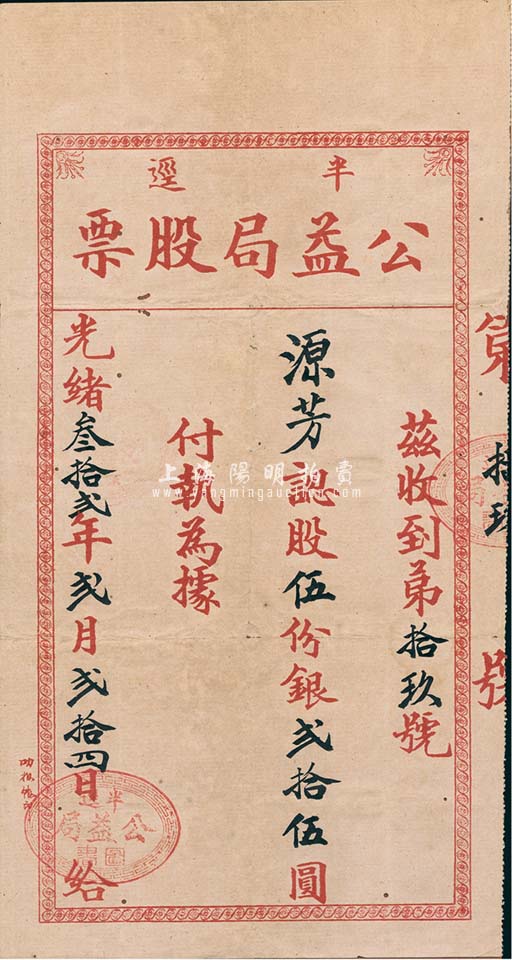 半逕
公益局股票
茲收到第拾玖號
源芳認股伍份銀弍拾伍圓
付執為據
光緒叁拾弍年弍月弍拾四日給
第拾玖號
半逕
公益局
圖書
上海陽明拍賣
www.yangmingauction.com